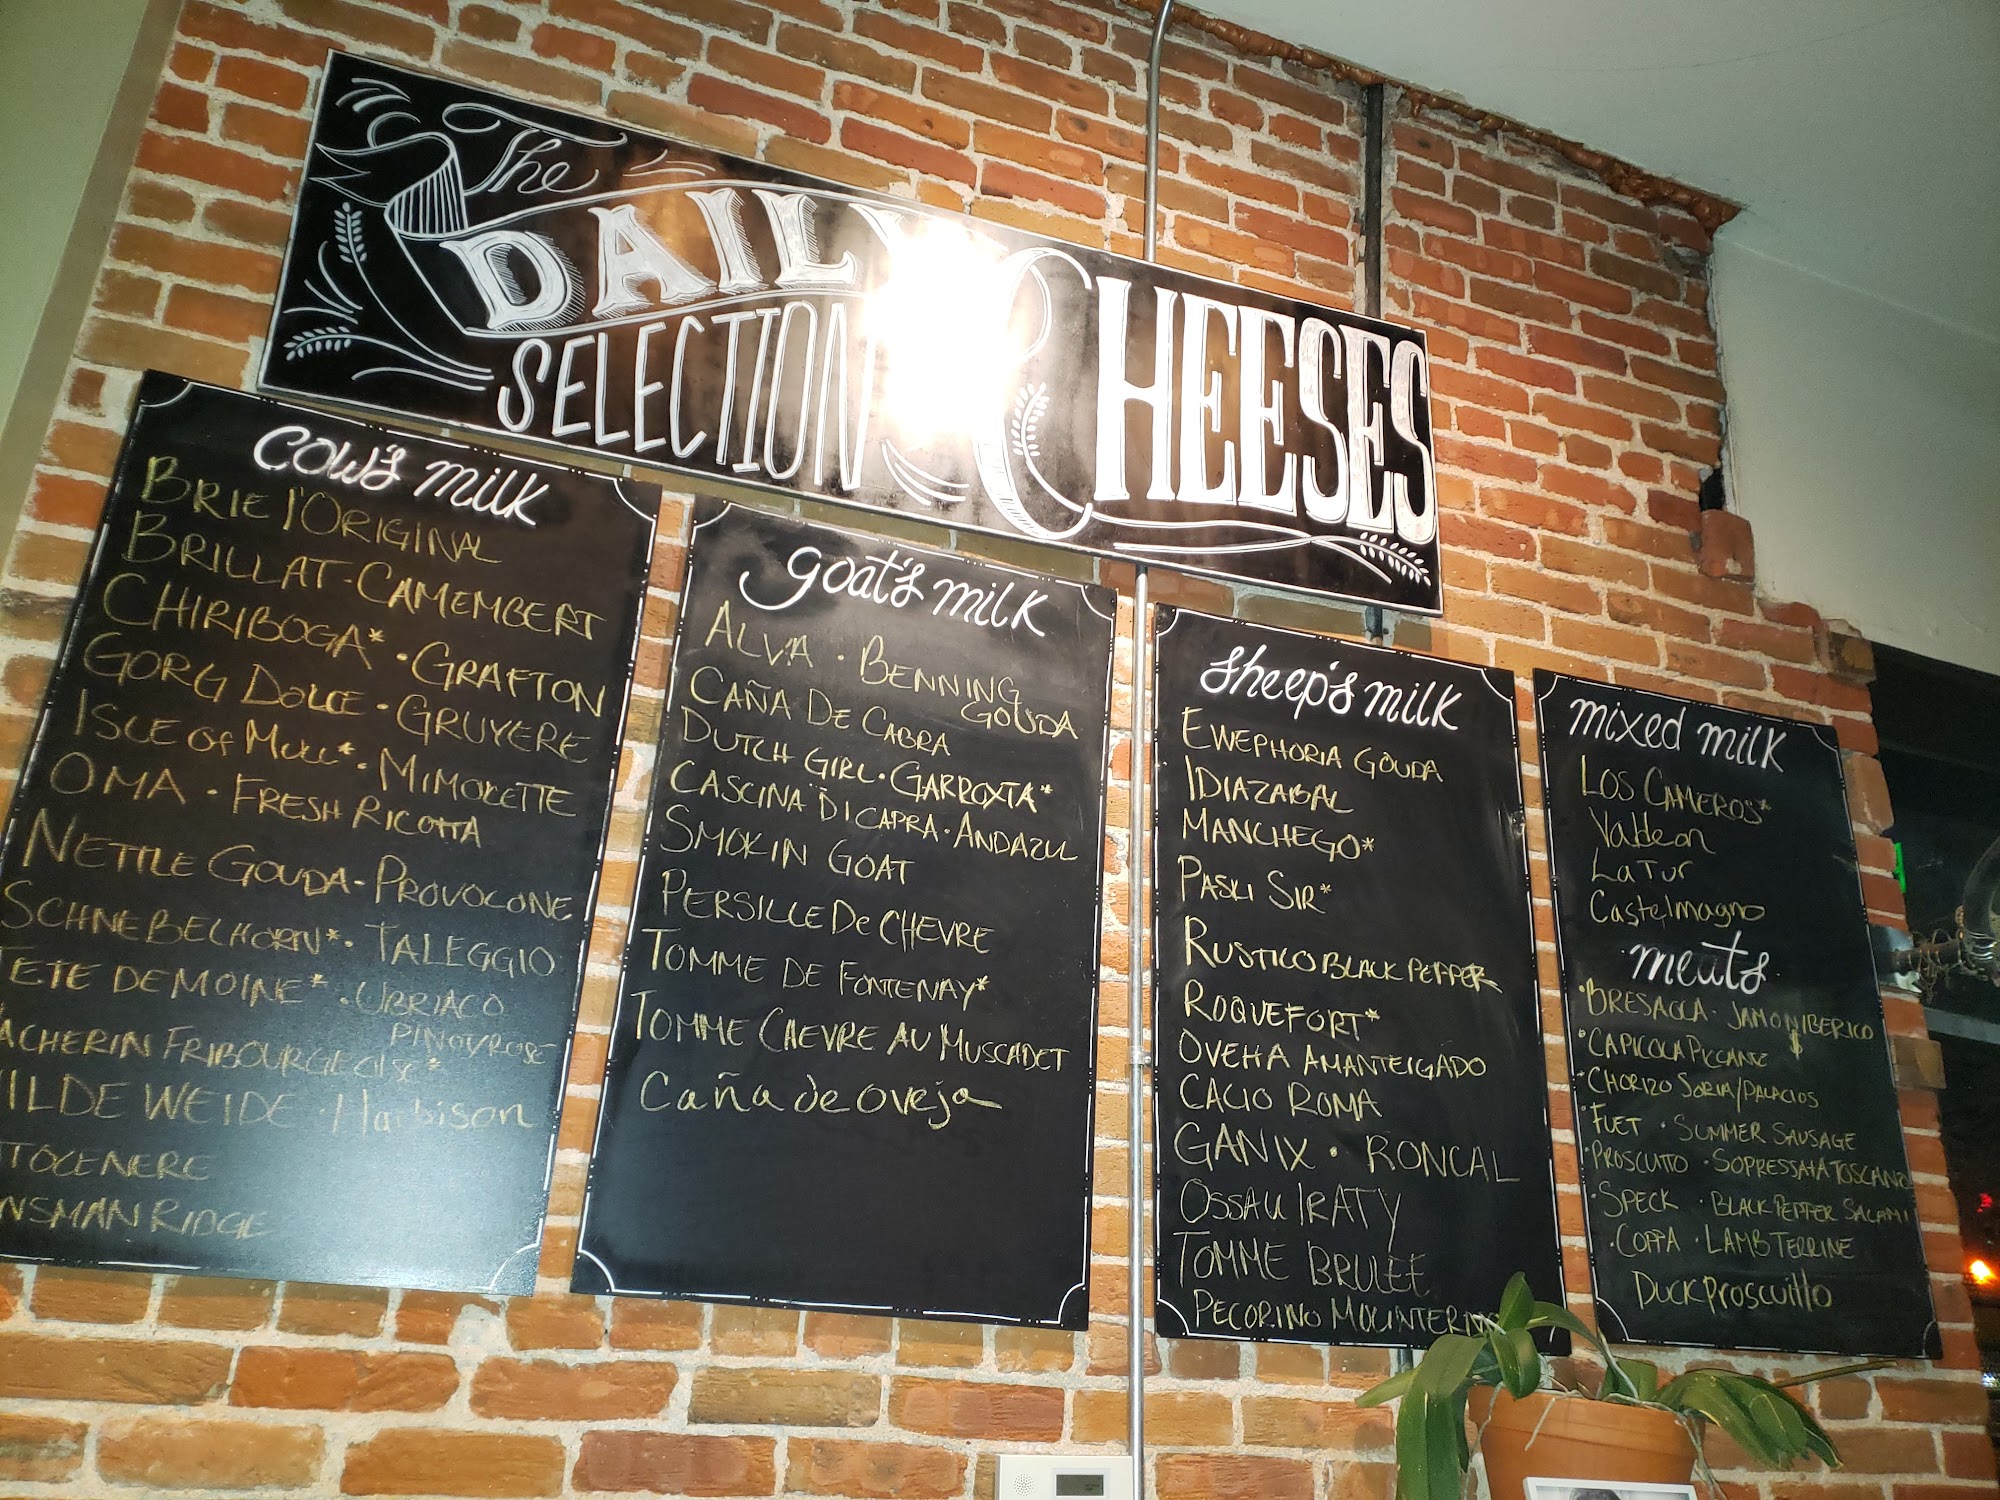 The
DAILY
SELECTION
CHEESES
cow's milk
BRIE l'ORIGINAL
BRILLAT · CAMEMBERT
CHIRIBOGA* · GRAFTON
GORG DOLCE · GRUYERE
ISLE OF MULL* · MIMOLETTE
OMA · FRESH RICOTTA
NETTLE GOUDA · PROVOLONE
SCHNEBELHORN* · TALEGGIO
TETE DE MOINE* · UBRIACO
PINOT/ROSE
VACHERIN FRIBOURGEOISE*
WILDE WEIDE · Harbison
TOCENERE
NSMAN RIDGE
goat's milk
ALVA · BENNING
GOUDA
CAÑA DE CABRA
DUTCH GIRL · GARROXTA*
CASCINA DI CAPRA · ANDAZUL
SMOKIN GOAT
PERSILLE DE CHEVRE
TOMME DE FONTENAY*
TOMME CHEVRE AU MUSCADET
Caña de oveja
sheep's milk
EWEPHORIA GOUDA
IDIAZABAL
MANCHEGO*
PASKI SIR*
RUSTICO BLACK PEPPER
ROQUEFORT*
OVEHA AMANTEIGADO
CACIO ROMA
GANIX · RONCAL
OSSAU IRATY
TOMME BRULEE
PECORINO MOLINTERNO
mixed milk
LOS CAMEROS*
Valdeon
La Tur
Castelmagno
· meats ·
· BRESAOLA · JAMON IBERICO
· CAPICOLA PICCANTE $
· CHORIZO SORIA/PALACIOS
· FUET · SUMMER SAUSAGE
· PROSCUTTO · SOPRESSATA TOSCANO
· SPECK · BLACK PEPPER SALAMI
· COPPA · LAMB TERRINE
DUCK PROSCUITTO